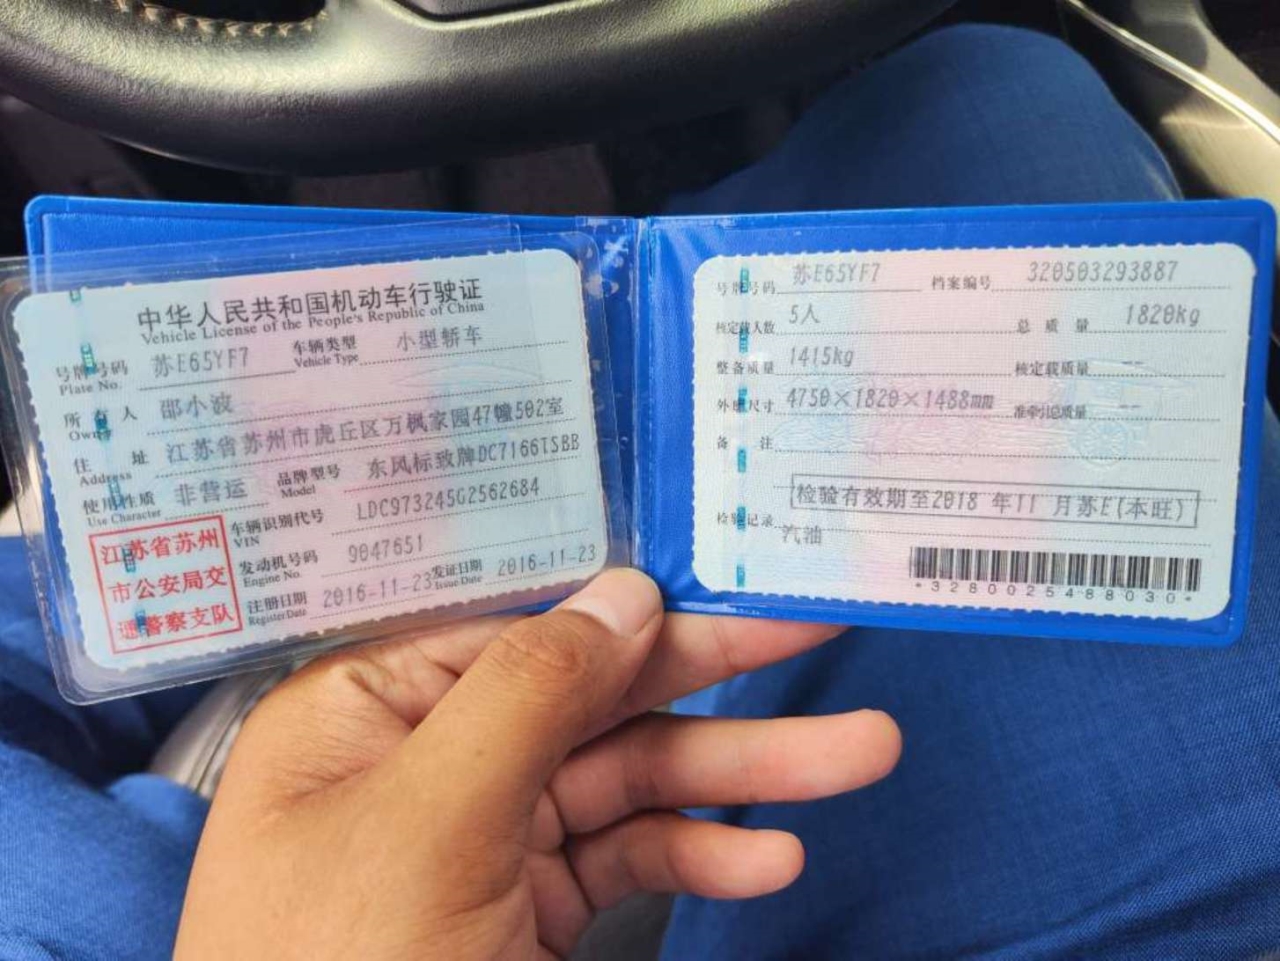 中华人民共和国机动车行驶证
Vehicle License of the People's Republic of China
号牌号码 苏E65YF7 车辆类型 小型轿车
Plate No. Vehicle Type
所有人 邵小波
Owner
住址 江苏省苏州市虎丘区万枫家园47幢502室
Address
使用性质 非营运 品牌型号 东风标致牌DC7166TSBB
Use Character Model
江苏省苏州
市公安局交
通警察支队
车辆识别代号 LDC973245G2562684
VIN
发动机号码 9047651
Engine No.
注册日期 2016-11-23 发证日期 2016-11-23
Register Date Issue Date
号牌号码 苏E65YF7 档案编号 320503293887
核定载人数 5人 总质量 1820kg
整备质量 1415kg 核定载质量 --
外廓尺寸 4750×1820×1488mm 准牵引总质量 --
备注
检验有效期至2018 年11 月苏E(本旺)
检验记录
汽油
*3280025488030*